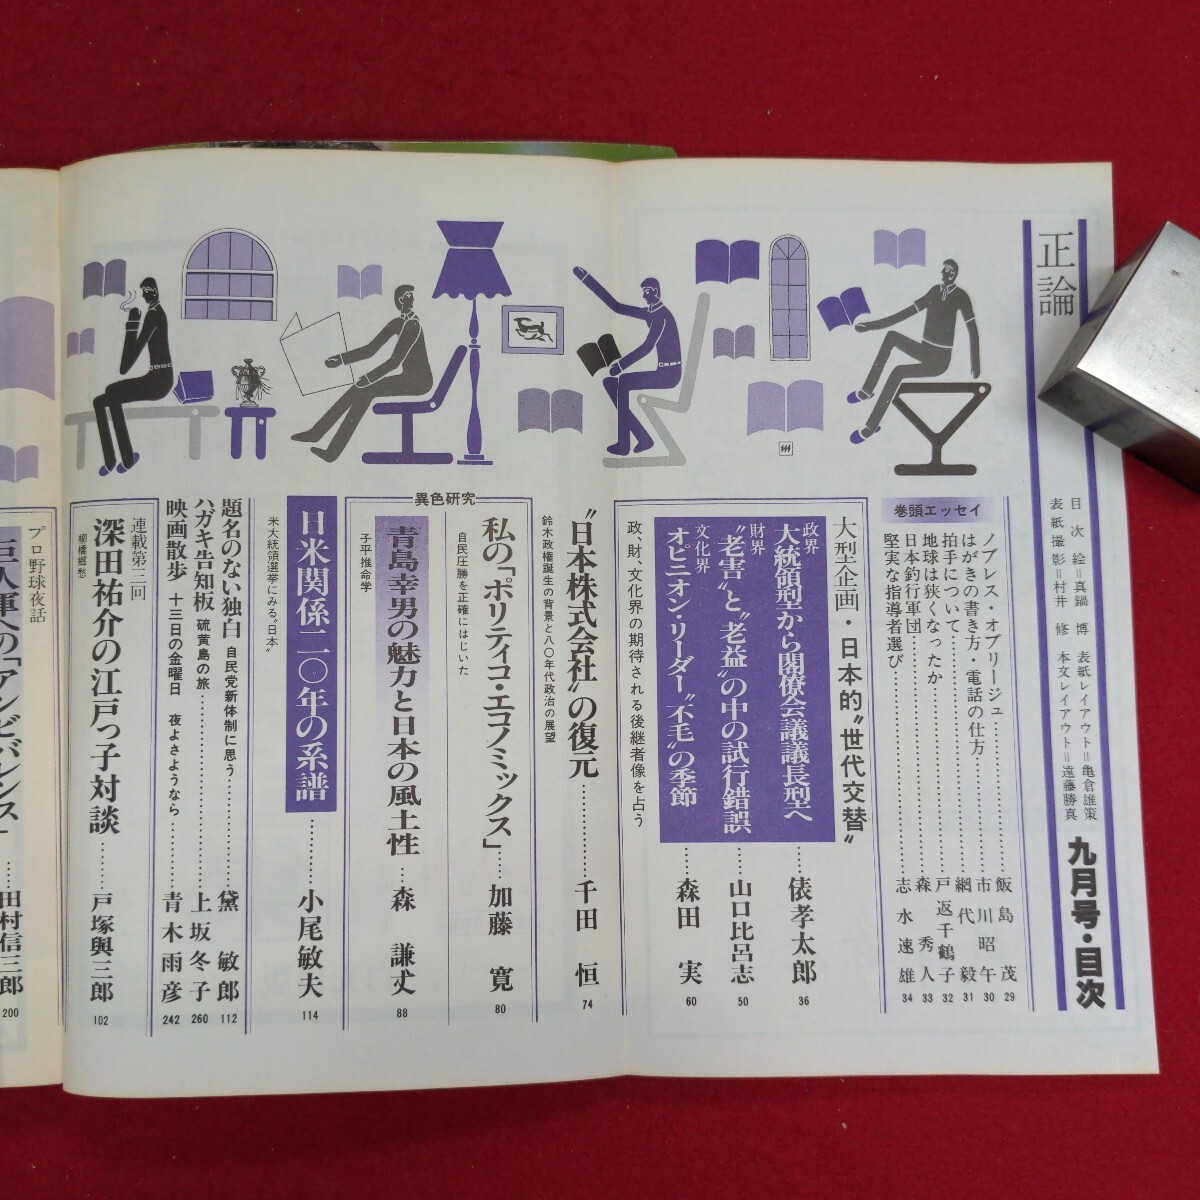 正論
九月号・目次
目次絵＝真鍋 博 表紙レイアウト＝亀倉雄策
表紙撮影＝村井 修 本文レイアウト＝遠藤勝真
巻頭エッセイ
ノブレス・オブリージュ……飯島 茂 29
はがきの書き方・電話の仕方……市川昭午 30
拍手について……網代 毅 31
地球は狭くなったか……戸返千鶴子 32
日本釣行軍団……森 秀人 33
堅実な指導者選び……志水速雄 34
大型企画・日本的〝世代交替〟
政界 大統領型から閣僚会議議長型へ……俵孝太郎 36
財界 〝老害〟と〝老益〟の中の試行錯誤……山口比呂志 50
文化界 オピニオン・リーダー〝不毛〟の季節……森田 実 60
政、財、文化界の期待される後継者像を占う
〝日本株式会社〟の復元……千田 恒 74
鈴木政権誕生の背景と八〇年代政治の展望
異色研究
私の「ポリティコ・エコノミックス」……加藤 寛 80
自民圧勝を正確にはじいた
青島幸男の魅力と日本の風土性……森 謙丈 88
子平推命学
日米関係二〇年の系譜……小尾敏夫 114
米大統領選挙にみる〝日本〟
題名のない独白 自民党新体制に思う……黛 敏郎 112
ハガキ告知板 硫黄島の旅……上坂冬子 260
映画散歩 十三日の金曜日 夜よさようなら……青木雨彦 242
連載第三回
深田祐介の江戸っ子対談……戸塚興三郎 102
柳橋郷愁
プロ野球夜話
巨人軍への「アンビバレンス」……田村信三郎 200